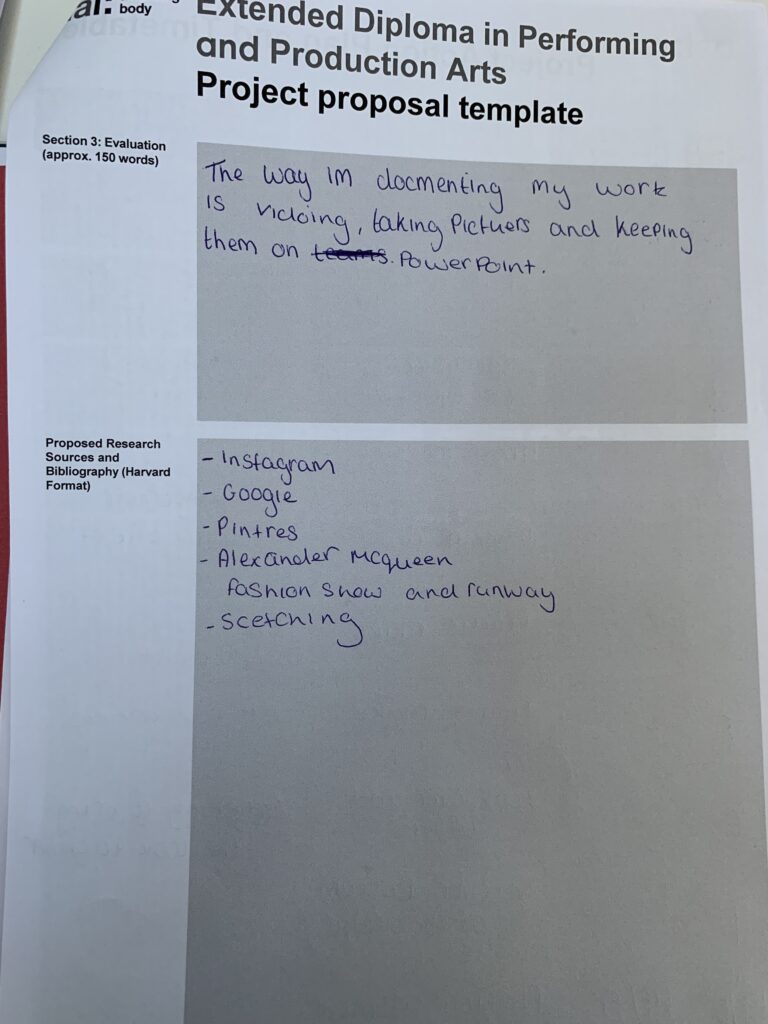 al: body
Extended Diploma in Performing
and Production Arts
Project proposal template
Section 3: Evaluation
(approx. 150 words)
The way im docmenting my work
is vidoing, taking Pictuers and keeping
them on teams. PowerPoint.
Proposed Research
Sources and
Bibliography (Harvard
Format)
- Instagram
- Google
- Pintres
- Alexander mcqueen
fashion show and runway
- scetching